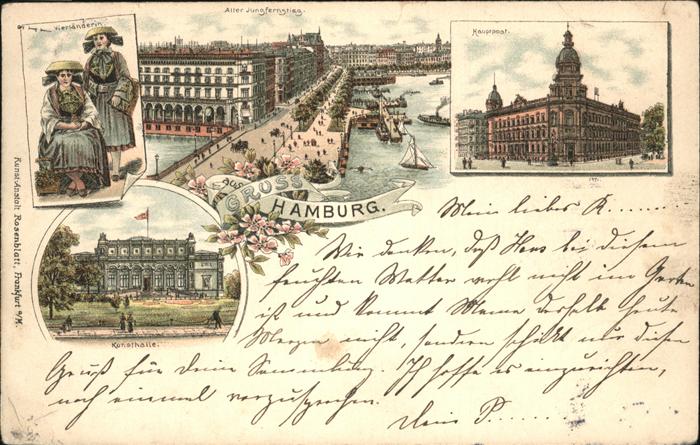 Vierländerin.
Alter Jungfernstieg.
Hauptpost.
GRUSS
AUS
HAMBURG.
Kunsthalle.
Kunst-Anstalt Rosenblatt, Frankfurt a/M.
Mein liebes K......
Wir denken, daß Hans bei diesem
feuchten Wetter wohl nicht im Garten
ist und kommt Mama deshalb heute
Morgen nicht, sondern schickt nur diesen
Gruß für deine Sammlung. Ich hoffe es einzurichten,
noch einmal vorzusprechen.
Dein P.......